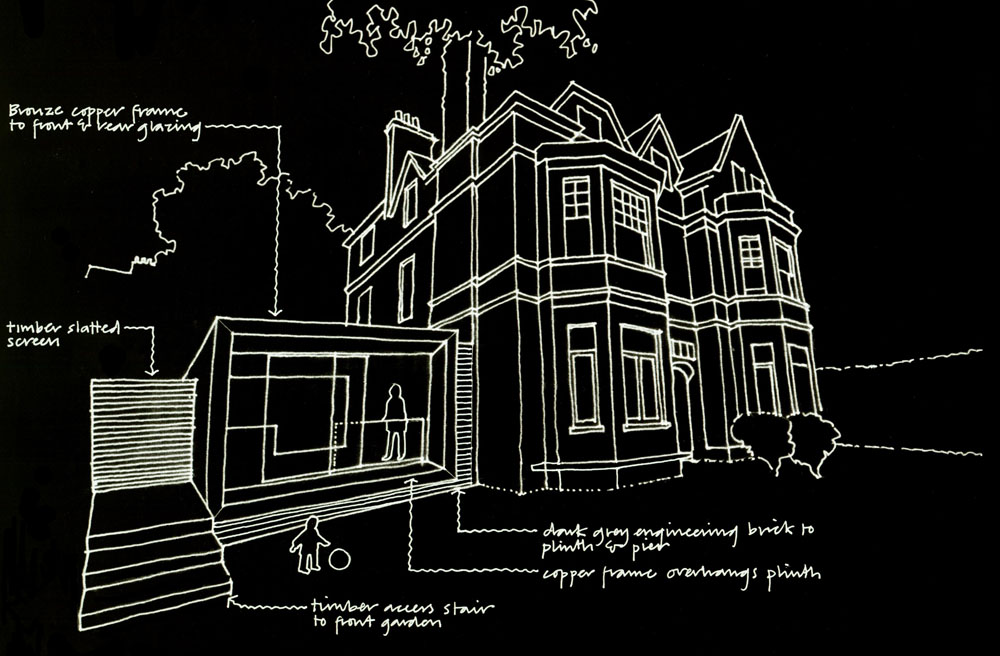 Bronze copper frame
to front & rear glazing
timber slatted
screen
dark grey engineering brick to
plinth & pier
copper frame overhangs plinth
timber access stair
to front garden